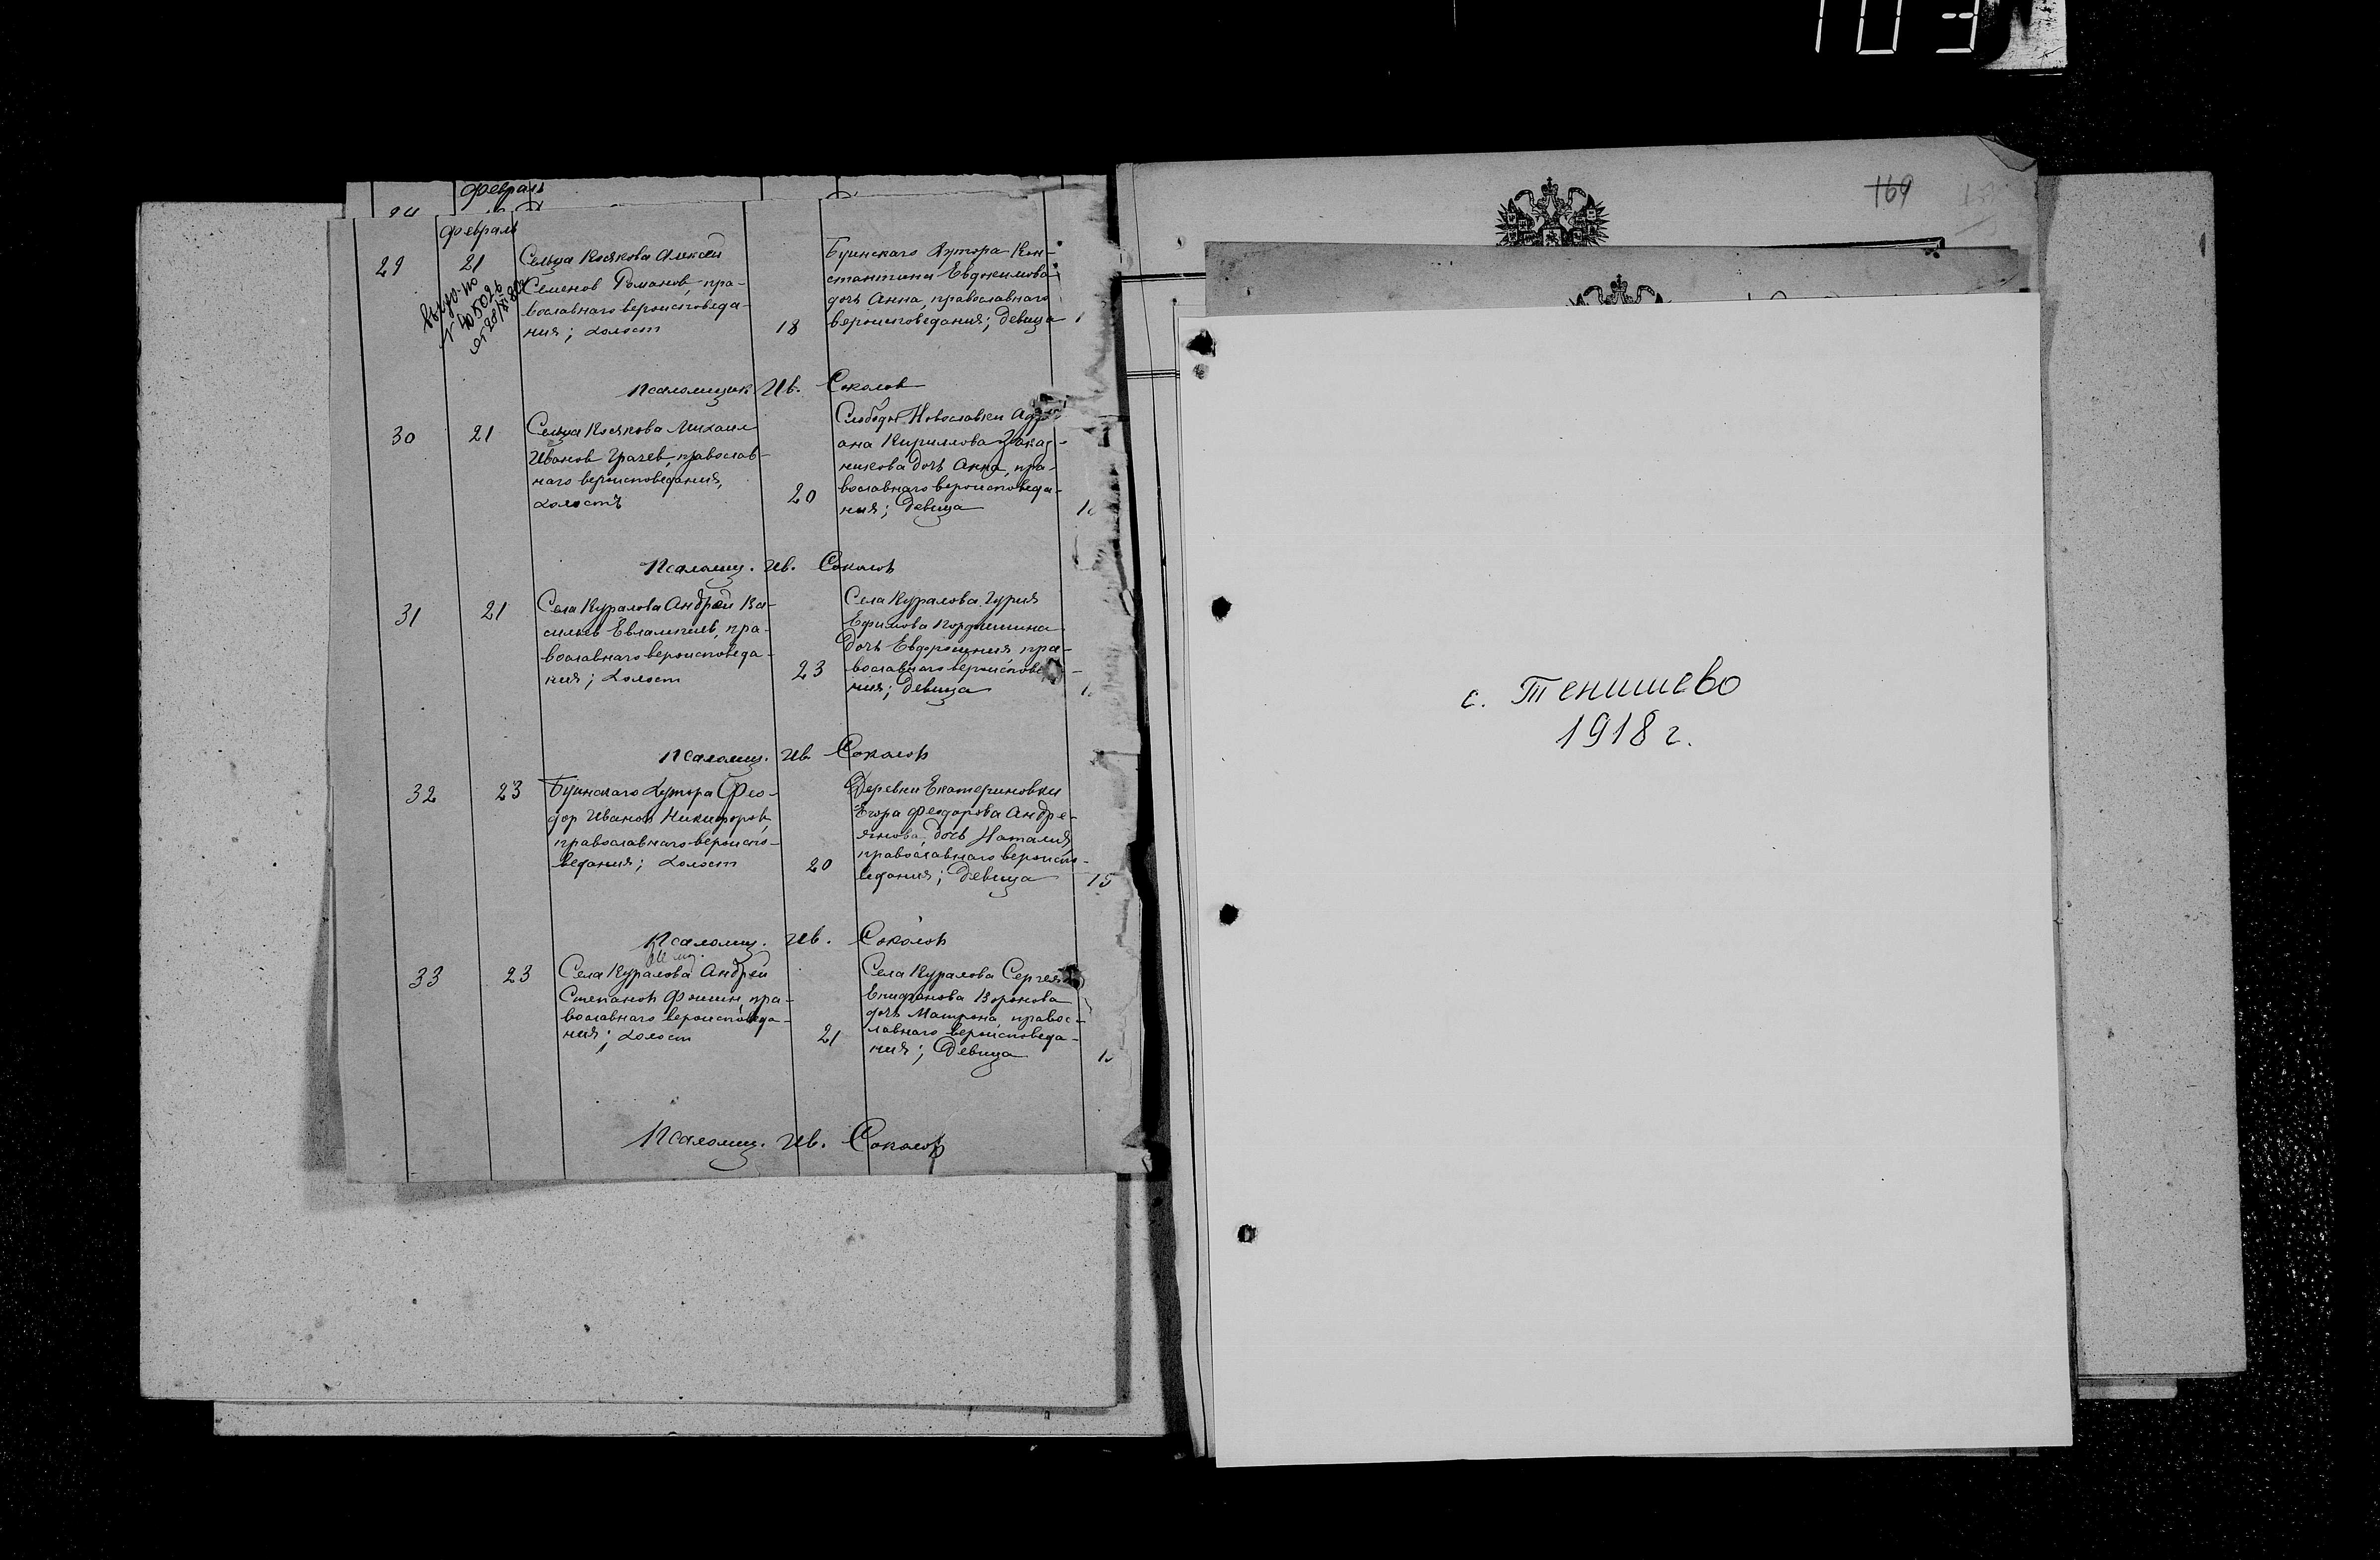 103
февраль
февраль
29
21
Сельца Косякова Алексей
Семенов Романов, пра-
вославнаго вероисповеда-
ния; холост
18
Буинскаго Хутора Кон-
стантина Евдокимова
дочь Анна, православнаго
вероисповедания; девица
Псаломщик Ив. Соколов
30
21
Сельца Косякова Михаил
Иванов Грачев, православ-
наго вероисповедания,
холостъ
20
Слободы Новославки
ана Кириллова
никова дочь Анна, пра-
вославнаго вероисповеда-
ния; девица
Псаломщ. Ив. Соколов
31
21
Села Куралова Андрей Ва-
сильев Евлампиев, пра-
вославнаго вероисповеда-
ния; холост
23
Села Куралова Гурия
Ефимова
дочь Евфросиния пра-
вославнаго вероиспове
ния; девица
Псаломщ. Ив. Соколов
32
23
Буинскаго Хутора Фео-
дор Иванов Никифоров,
православнаго вероиспо-
ведания; холост
20
Деревни Екатериновки
Егора Феодорова Андре-
янова, дочь Наталия,
православнаго вероиспо-
ведания; девица
15
Псаломщ. Ив. Соколов
33
23
Села Куралова Андрей
Степанов Фомин, пра-
вославнаго вероисповеда-
ния; холост
21
Села Куралова Сергея
Епифанова Воронова
дочь Матрона, правос-
лавнаго вероисповеда-
ния; девица
Псаломщ. Ив. Соколов
169
с. Тенишево
1918 г.